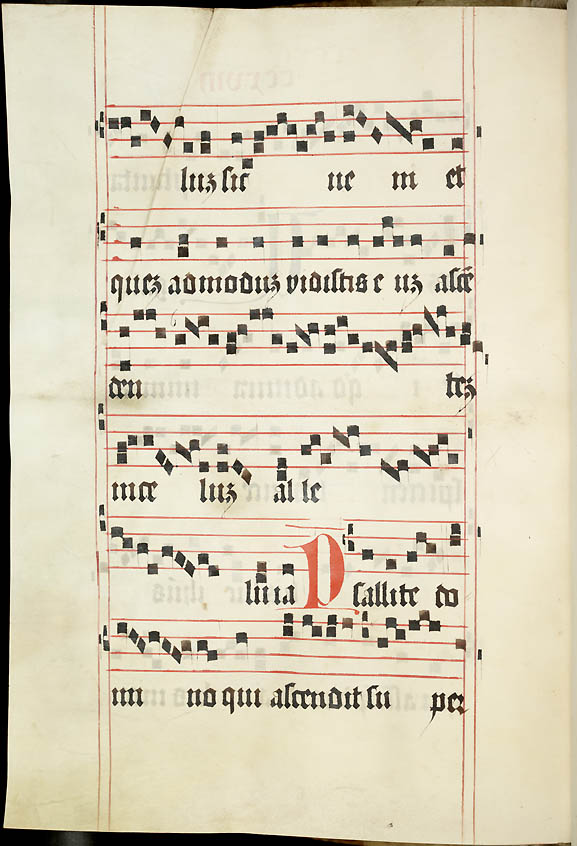 luz sic ue ni et
quez admoduz vidistis e uz ascē
den tez
in ce luz al le
lu ia Psallite do
mi no qui ascendit su per